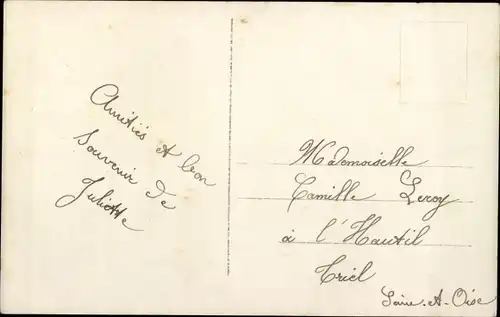 Amitiés et bon
Souvenir de
Juliette
Mademoiselle
Camille Leroy
à l'Hautil
Triel
Seine-et-Oise